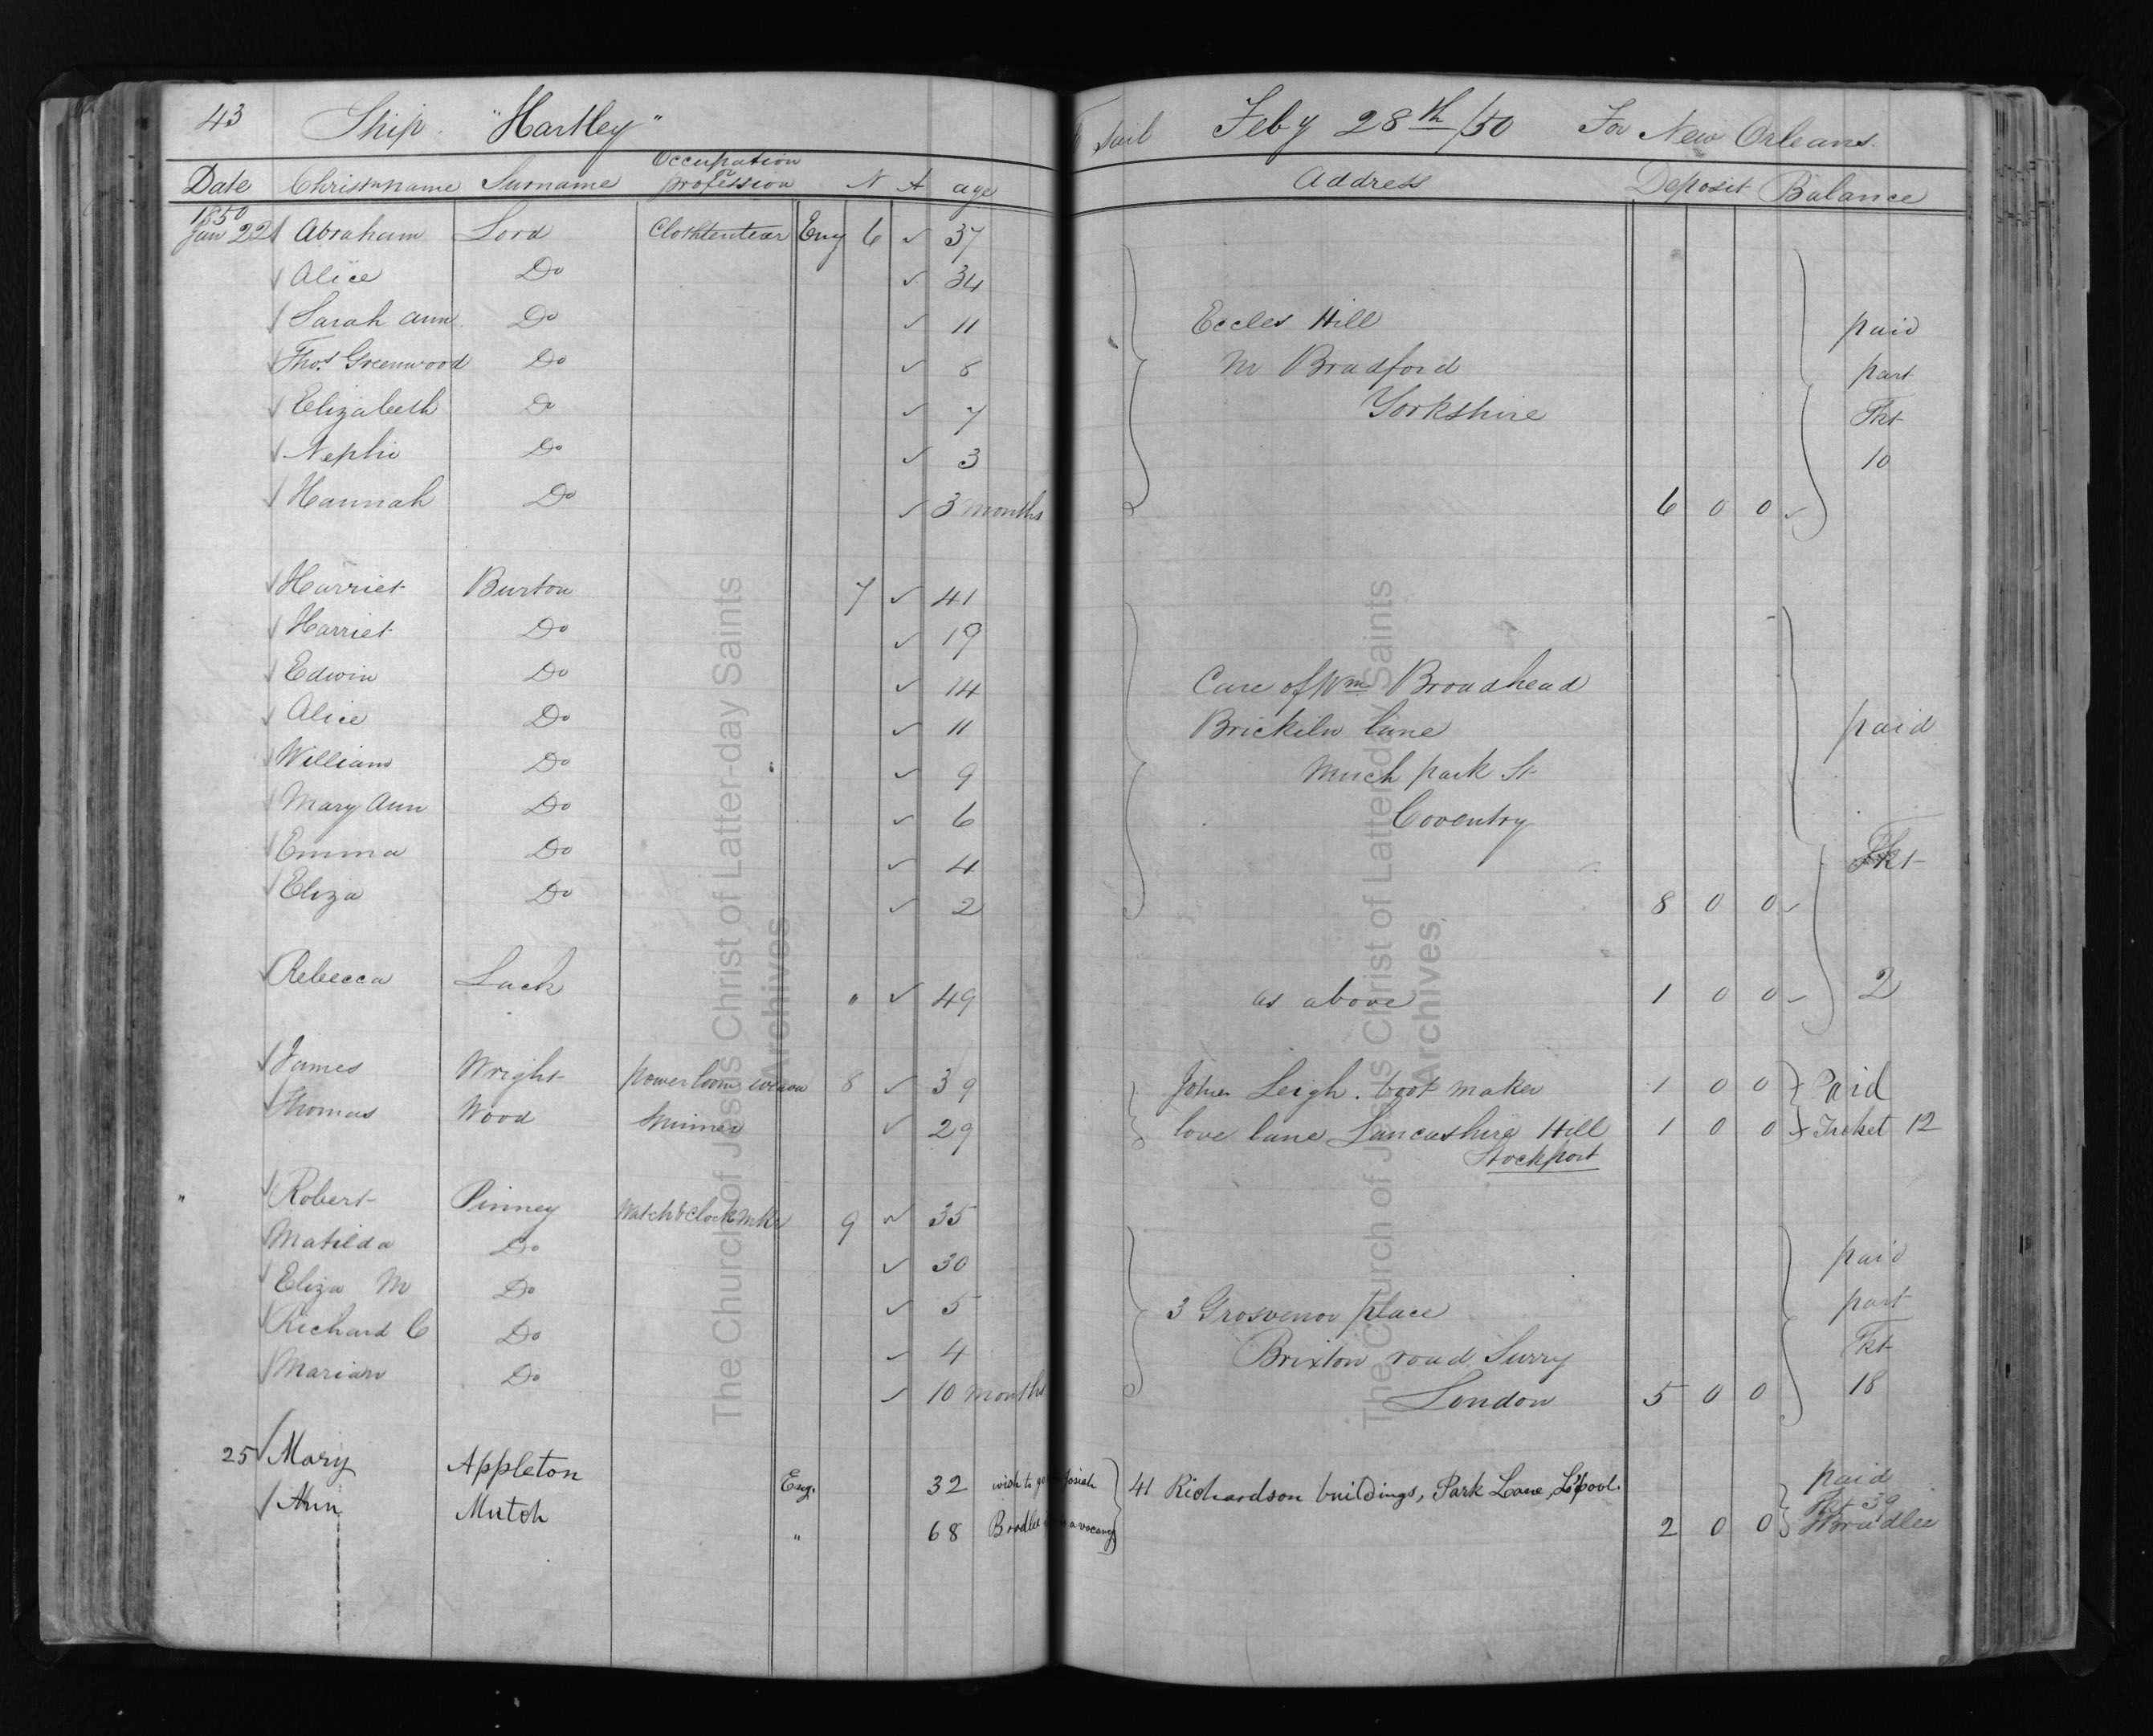 43 Ship "Hartley" To Sail Feby 28th /50 For New Orleans
Date Christn name Surname Occupation or profession N A age Address Deposit Balance
1850
Jan 22 Abraham Lord Clothtenter Eng 6 ✓ 37
Alice Do ✓ 34
Sarah Ann Do ✓ 11 Eccles Hill paid
Thos. Greenwood Do ✓ 8 nr Bradford part
Elizabeth Do ✓ 7 Yorkshire Tkt
Nephi Do ✓ 3 10
Hannah Do ✓ 3 months 6 0 0 ✓
Harriet Burton 7 ✓ 41
Harriet Do ✓ 19
Edwin Do ✓ 14 Care of Wm Broadhead
Alice Do ✓ 11 Brickiln lane paid
William Do ✓ 9 Much park St
Mary Ann Do ✓ 6 Coventry
Emma Do ✓ 4 Tkt
Eliza Do ✓ 2 8 0 0 ✓
Rebecca Luck " ✓ 49 as above 1 0 0 ✓ 2
James Wright power loom weaver 8 ✓ 39 John Leigh. boot maker 1 0 0 Paid
Thomas Wood Spinner ✓ 29 love lane Lancashire Hill 1 0 0 Ticket 12
Stockport
" Robert Pinney Watch & Clock Mkr 9 ✓ 35
Matilda Do ✓ 30 paid
Eliza M Do ✓ 5 3 Grosvenor place part
Richard C Do ✓ 4 Brixton road, Surry Tkt
Marian Do ✓ 10 months London 5 0 0 18
25 Mary Appleton Eng. 32 wish to go Josiah 41 Richardson buildings, Park Lane, L'pool. paid
Tkt 39
Ann Mutch " 68 Bradlee a vacancy 2 0 0 Bradlee
The Church of Jesus Christ of Latter-day Saints
Archives
The Church of Jesus Christ of Latter-day Saints
Archives